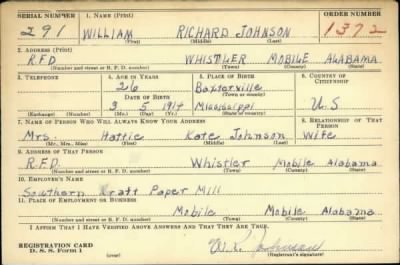 SERIAL NUMBER 1. NAME (Print) ORDER NUMBER
291 WILLIAM RICHARD JOHNSON 1372
(First) (Middle) (Last)
2. ADDRESS (Print)
RFD WHISTLER MOBILE ALABAMA
(Number and street or R. F. D. number) (Town) (County) (State)
3. TELEPHONE 4. AGE IN YEARS 5. PLACE OF BIRTH 6. COUNTRY OF CITIZENSHIP
26 Baxterville
DATE OF BIRTH (Town or county)
3 5 1914 Mississippi U S
(Exchange) (Number) (Mo.) (Day) (Yr.) (State or country)
7. NAME OF PERSON WHO WILL ALWAYS KNOW YOUR ADDRESS 8. RELATIONSHIP OF THAT PERSON
Mrs. Hattie Kate Johnson Wife
(Mr., Mrs., Miss) (First) (Middle) (Last)
9. ADDRESS OF THAT PERSON
R.F.D. Whistler Mobile Alabama
(Number and street or R. F. D. number) (Town) (County) (State)
10. EMPLOYER'S NAME
Southern Kraft Paper Mill
11. PLACE OF EMPLOYMENT OR BUSINESS
Mobile Mobile Alabama
(Number and street or R. F. D. number) (Town) (County) (State)
I AFFIRM THAT I HAVE VERIFIED ABOVE ANSWERS AND THAT THEY ARE TRUE.
REGISTRATION CARD W. R. Johnson
D. S. S. Form 1 (over) (Registrant's signature)